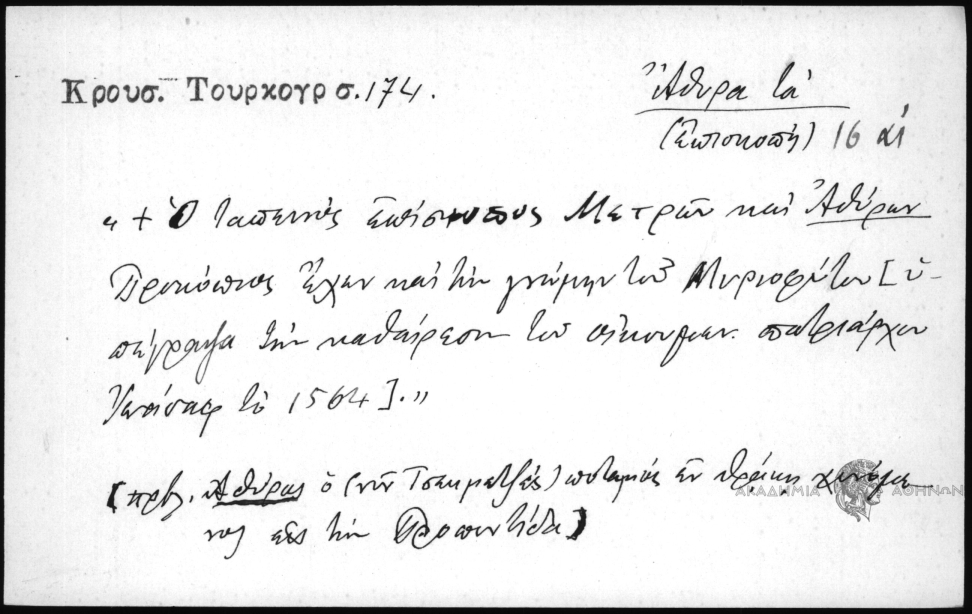 Κρουσ. Τουρκογρ σ. 174.
Ἄθυρα τὰ
(Ἐπισκοπή) 16 αἰ
« + Ὁ ταπεινὸς ἐπίσκοπος Μετρῶν καὶ Ἀθύρων
Προκόπιος ἔχων καὶ τὴν γνώμην τοῦ Μυριοφύτου [ὑ-
πέγραψα τὴν καθαίρεσιν τοῦ οἰκουμεν. πατριάρχου
Ἰωάσαφ τὸ 1564].»
[πρβλ. Ἀθύρας ὁ (νῦν Τσεκμετζὲς) ποταμὸς ἐν Θράκῃ χυνόμε
νος εἰς τὴν Προποντίδα]
ΑΚΑΔΗΜΙΑ ΑΘΗΝΩΝ